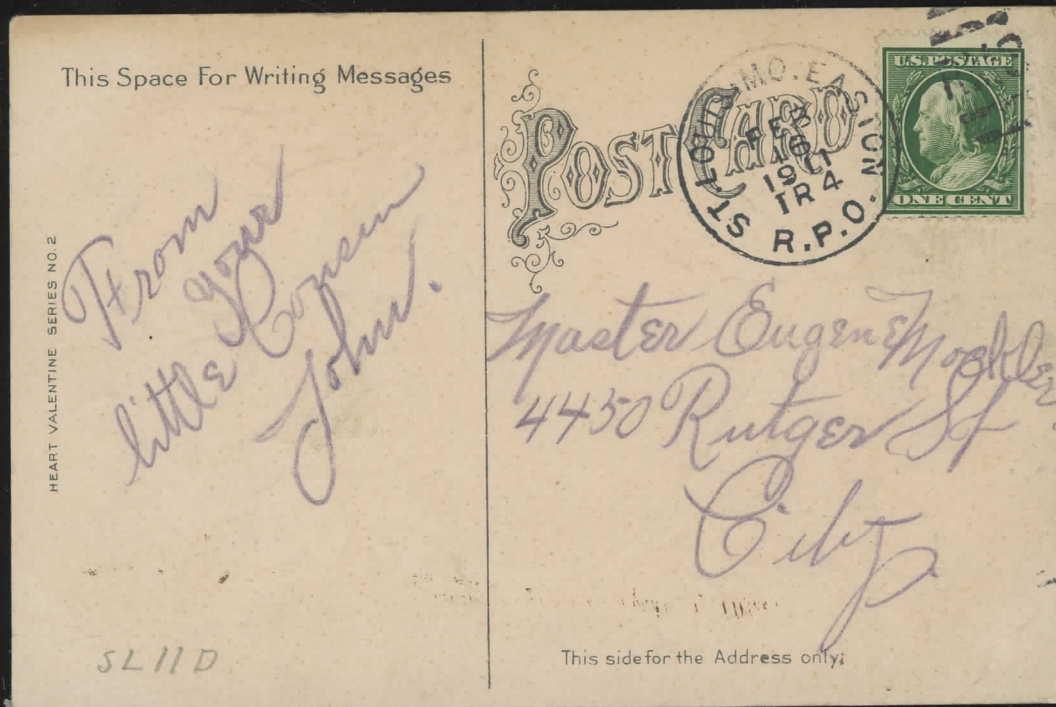 This Space For Writing Messages
HEART VALENTINE SERIES NO. 2
From
your
little Cousin
John.
SL11D
POST CARD
ST. LOUIS, MO. EASTON
FEB
16
1911
TR 4
R.P.O.
U.S. POSTAGE
ONE CENT
Master Eugene
4450 Rutger St
City
This side for the Address only.